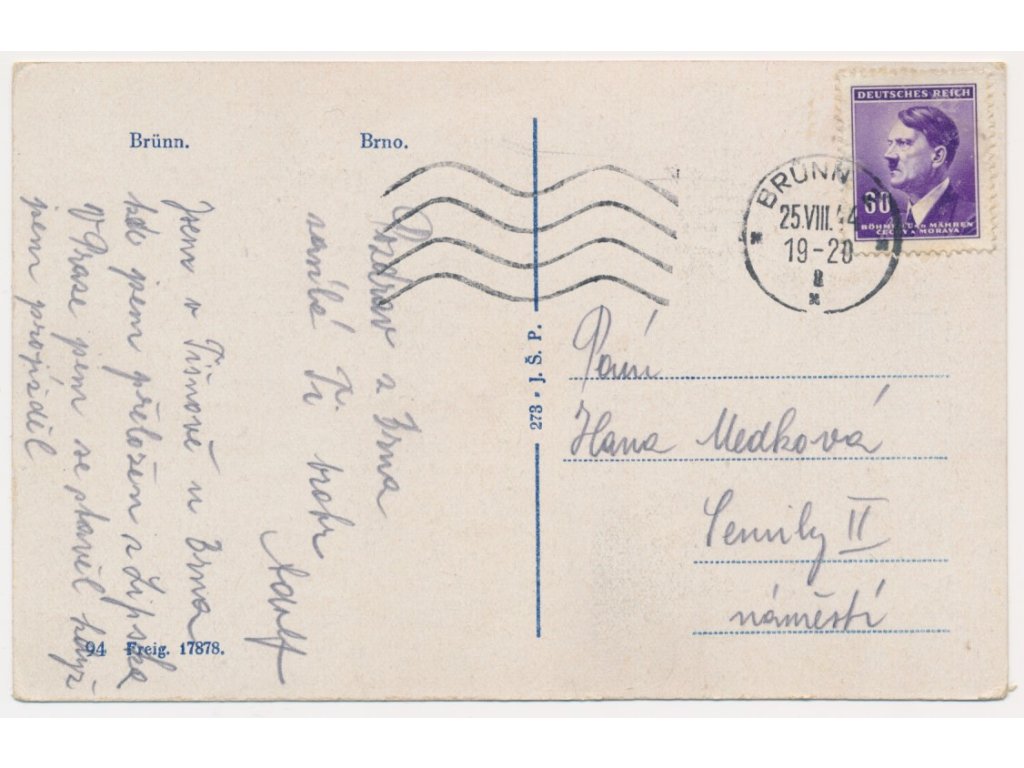 Brünn.
Brno.
DEUTSCHES REICH
60
BÖHMEN u. MÄHREN
ČECHY A MORAVA
BRÜNN
25.VIII.44
19-20
a
Pozdrav z Brna
Ti bratr
Adolf
Jsem v Tišnově u Brna
kde jsem přeložen z Lipska
V Praze jsem se stavěl když
jsem projížděl
273 • J. Š. P.
Paní
Hana Medková
Semily II
náměstí
94 Freig. 17878.